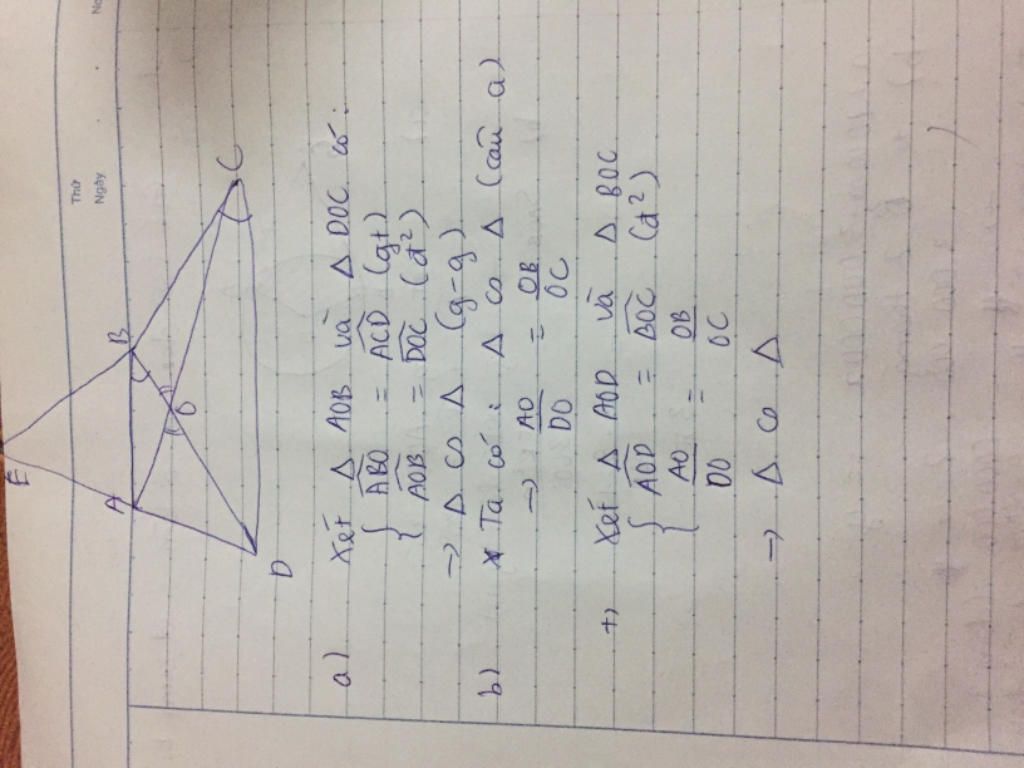 Thứ
Ngày
No
E
A
B
O
D
C
a) Xét Δ AOB và Δ DOC có:
{ ABO = ACD (gt)
AOB = DOC (đ²)
→ Δ ∽ Δ (g-g)
b) * Ta có: Δ ∽ Δ (câu a)
→ AO/DO = OB/OC
+, Xét Δ AOD và Δ BOC
{ AOD = BOC (đ²)
AO/DO = OB/OC
→ Δ ∽ Δ